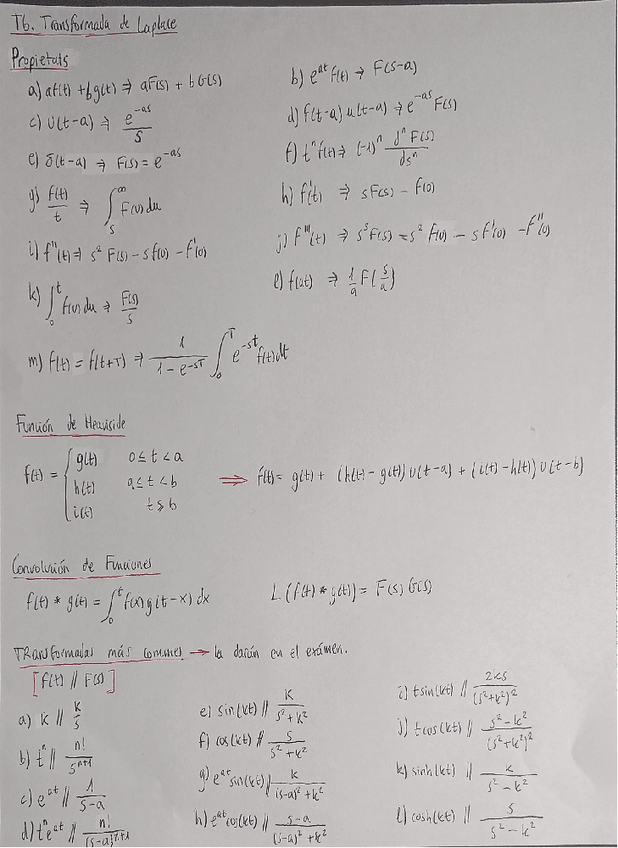 T6. Transformada de Laplace
Propietats
a) af(t) + bg(t) ⇒ aF(s) + bG(s)
b) e^{at} f(t) ⇒ F(s-a)
c) U(t-a) ⇒ e^{-as}/s
d) f(t-a) u(t-a) ⇒ e^{-as} F(s)
e) δ(t-a) ⇒ F(s) = e^{-as}
f) t^n f(t) ⇒ (-1)^n d^n F(s)/ds^n
g) f(t)/t ⇒ ∫_s^∞ F(u) du
h) f'(t) ⇒ sF(s) - f(0)
i) f''(t) ⇒ s² F(s) - sf(0) - f'(0)
j) f'''(t) ⇒ s³F(s) - s² f(0) - sf'(0) - f''(0)
k) ∫_0^t f(u) du ⇒ F(s)/s
l) f(at) ⇒ 1/a F(s/a)
m) f(t) = f(t+T) ⇒ 1/(1-e^{-sT}) ∫_0^T e^{-st} f(t) dt
Función de Heaviside
f(t) = { g(t) 0≤t<a
h(t) a≤t<b
i(t) t≥b
⇒ f(t) = g(t) + (h(t) - g(t)) U(t-a) + (i(t) - h(t)) U(t-b)
Convolución de Funciones
f(t) * g(t) = ∫_0^t f(x) g(t-x) dx
L{f(t) * g(t)} = F(s) G(s)
Transformadas más comunes → la darán en el exámen.
[f(t) // F(s)]
a) k // k/s
b) t^n // n!/s^{n+1}
c) e^{at} // 1/(s-a)
d) t^n e^{at} // n!/(s-a)^{n+1}
e) sin(kt) // k/(s²+k²)
f) cos(kt) // s/(s²+k²)
g) e^{at} sin(kt) // k/((s-a)²+k²)
h) e^{at} cos(kt) // (s-a)/((s-a)²+k²)
i) t sin(kt) // 2ks/(s²+k²)²
j) t cos(kt) // (s²-k²)/(s²+k²)²
k) sinh(kt) // k/(s²-k²)
l) cosh(kt) // s/(s²-k²)